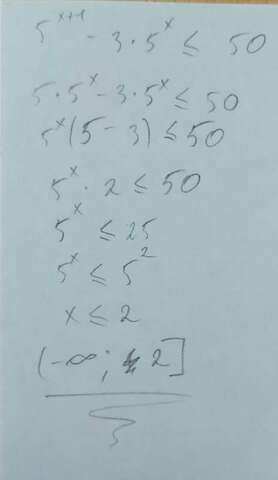 5^{x+1} - 3 · 5^x ≤ 50
5 · 5^x - 3 · 5^x ≤ 50
5^x (5 - 3) ≤ 50
5^x · 2 ≤ 50
5^x ≤ 25
5^x ≤ 5^2
x ≤ 2
(-∞; 2]